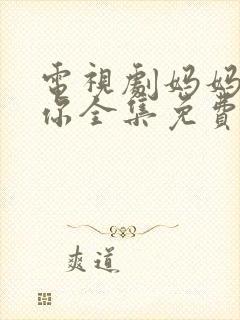 電視劇妈妈
你全集免費
爽道